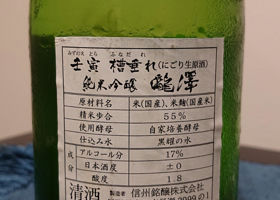 みずのえ とら ふなだれ
壬寅 槽垂れ(にごり生原酒)
純米吟醸 瀧澤
原材料名 米(国産)、米麹(国産米)
精米歩合 55%
使用酵母 自家培養酵母
仕込み水 黒耀の水
成分 アルコール分 17%
日本酒度 ±0
酸度 1.8
清酒 製造者 信州銘醸株式会社